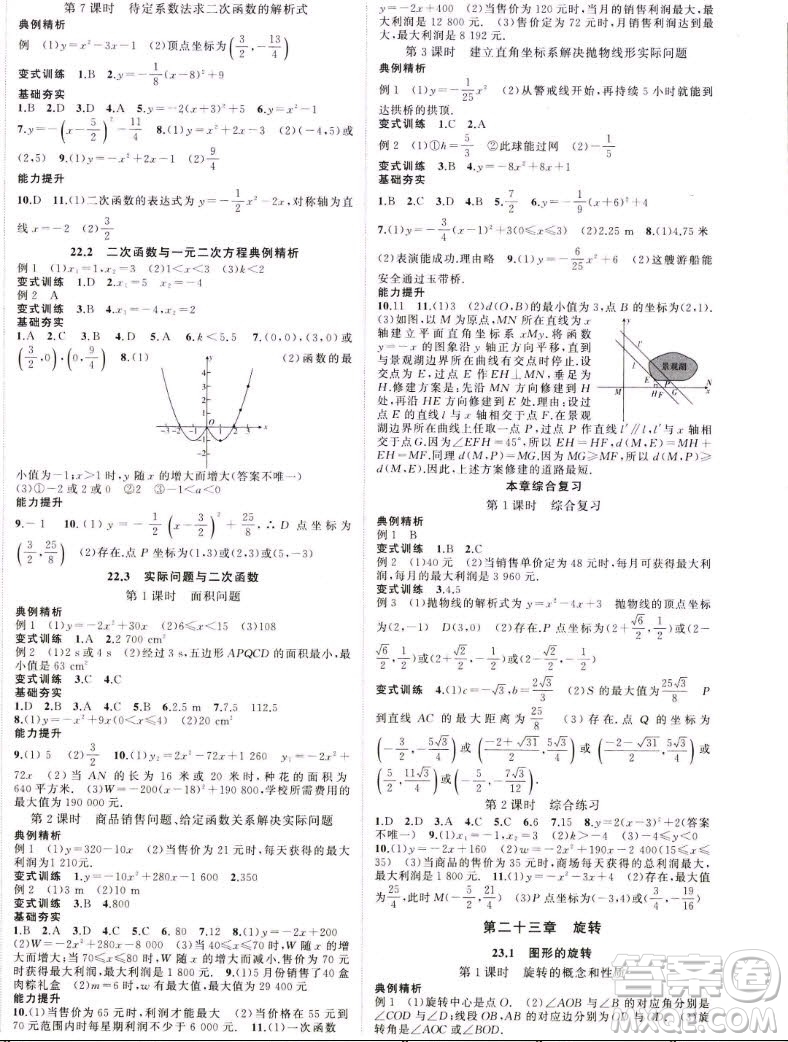 第7课时 待定系数法求二次函数的解析式
典例精析
例 (1)y=x²-3x-2 (2)顶点坐标为(3/2,-13/4)
变式训练 1.B 2.y=-1/8(x-8)²+9
基础夯实
1.B 2.D 3.D 4.A 5.y=-2(x+3)²+5 6.y=x²-1
7.y=-(x-5/2)²-11/4 8.(1)y=x²+2x-3 (2)(-4,5)或
(2,5) 9.(1)y=-x²+2x+3 (2)9/4
能力提升
10.D 11.(1)二次函数的表达式为y=-1/2x²-2x,对称轴为直
线x=-2 (2)3/2
22.2 二次函数与一元二次方程典例精析
例1 (1)x₁=1,x₂=3 (2)1<x<3 (3)k<2
变式训练 1.C 2.x₁=5 x₂=-3
例2 A
变式训练 3.C 4.D
基础夯实
1.A 2.C 3.B 4.D 5.A 6.k<5.5 7.(0,0),(3,0)或
(3/2,0),(0,9/4) 8.(1) (2)函数的最
-3 -2 -1 O 1 2 3 x
小值为-1;x>1时,y随x的增大而增大(答案不唯一)
(3)①-2或0或2 ②3 ③-1<a<0
能力提升
9.-1 10.(1)y=-1/2(x-3/2)²+25/8,∴D点坐标为
(3/2,25/8) (2)存在,点P坐标为(1,3)或(2,3)
22.3 实际问题与二次函数
第1课时 面积问题
典例精析
例1 (1)y=-2x²+30x (2)6≤x<15 (3)108
变式训练 1.A 2.2 700 cm²
例2 (1)2 s或4 s (2)经过3 s,五边形APQCD的面积最小,最
小值是63 cm²
变式训练 3.C 4.C
基础夯实
1.D 2.B 3.C 4.B 5.B 6.2.5 m 7.7.5 112.5
8.(1)y=-x²+9x(0<x≤4) (2)20 cm²
能力提升
9.(1)5 (2)3/2 10.(1)y=2x²-72x+1 260 y₁=-2x²+
72x (2)当AN的长为16米或20米时,种花的面积为
640平方米. (3)W=-200(x-18)²+190 800,学校所花费用的
最大值为190 000元.
第2课时 商品销售问题、给定函数关系解决实际问题
典例精析
例1 (1)y=320-10x (2)当售价为21元时,每天获得的最大
利润为1 210元.
变式训练 1.y=-10x²+280x-1 600 2.350
例2 (1)3 m (2)10 m
变式训练 3.B 4.800
基础夯实
1.A 2.D 3.C 4.C 5.A 6.80 7.42 8.(1)y=-2x+160
(2)W=-2x²+200x-3 200,(3)当40≤x≤50时,W随x的增
大而增大;当50≤x≤80时,W随x的增大而减小.当售价为50元
时,能获得最大利润,最大利润是1 800元. 9.(1)每盒售价40元
(2)当每盒售价为45元时,最大利润为1 750元
能力提升
10.(1)y=-10x+740(44≤x≤52) (2)当售价在55元到
70元范围内时每星期利润不少于6 000元 11.(1)一次函数
最大利润是12 800元.(3)定价为64元时,每日销售利润
最大利润是8 192元.
第3课时 建立直角坐标系解决抛物线形实际问题
典例精析
例1 (1)y=-1/25x² (2)从警戒线开始,再持续5小时就能到
达拱桥的拱顶.
变式训练 1.C 2.A
例2 (1)①h=5/3 ②此球能过网 (2)-1/5
变式训练 3.B 4.y=-8x²+8x+1
基础夯实
1.B 2.C 3.D 4.B 5.7/2 6.y=-1/9(x+6)²+4
7.(1)y=-3/4(x-1)²+3(0≤x≤3) (2)2.25 m 8.(1)4.75米
(2)表演能成功,理由略 9.(1)y=-6/25x²+6 (2)这艘游船能
安全通过玉带桥.
能力提升
10.11 11.(1)3 (2)d(O,B)的最小值为3,点B的坐标为(2,1).
(3)如图,以M为原点,MN所在直线为x
轴建立平面直角坐标系xMy.将函数
y=-x的图象沿y轴正方向平移,直到
与景观湖边界所在曲线有交点时停止.设
交点为E,过点E作EH⊥MN,垂足为
H.修建方案是:先沿MN方向修建到H
处,再沿HE方向修建到E处.理由:设过
点E的直线l与x轴相交于点F,在景观
湖边界所在曲线上任取一点P,过点P作直线l'∥l,l'与x轴相交
于点G.因为∠EFH=45°,所以EH=HF,d(M,E)=MH+
EH=MF.同理d(M,P)=MG.因为MG≥MF,所以d(M,P)≥
d(M,E).因此,上述方案修建的道路最短.
景观湖
l l' E P M HF G N x
本章综合复习
第1课时 综合复习
典例精析
例1 B
变式训练 1.B 2.C
例2 (1)40元 (2)当销售单价定为48元时,每月可获得最大利
润,每月的最大利润是3 960元.
变式训练 3.4 4.15
例3 (1)抛物线的解析式为y=x²-4x+3 抛物线的顶点坐标
为(2,-1) D(3,0) (2)存在,P点坐标为(2+√6/2,1/2)或(2-
√6/2,1/2)或(2+√2/2,-1/2)或(2-√2/2,-1/2)
变式训练 4.(1)c=-√3,b=2√3/3 (2)S的最大值为25√3/8 P
到直线AC的最大距离为25/8 (3)存在,点Q的坐标为
(-3/2,-5√3/4)或(-2-√31/2,5√3/4)或(-2+√31/2,
5√3/4)或(-5/2,-5√3/4)
第2课时 综合练习
1.D 2.A 3.A 4.C 5.C 6.6 7.15 8.y=-x²+2(答案
不唯一) 9.(1)x₁=-1,x₂=2 (2)k>-4 (3)-4≤y<0
10.(1)y=-2x+160 (2)w=-2x²+200x-4 800(15≤x≤
35) (3)当商品的售价为35元时,商场每天获得的总利润最大,最
大利润是 11.(1)y=-x²-3x+4 (2)DM的最大值
为25/4,此时M(-5/2,21/4) (3)P点的坐标为(-3/4,-19/16)
第二十三章 旋转
23.1 图形的旋转
第1课时 旋转的概念和性质
典例精析
例1 (1)旋转中心是点O. (2)∠AOB与∠B的对应角分别是
∠COD与∠D;线段OB、AB的对应边分别是OD、CD. (3)旋
转角是∠AOC或∠BOD.
答案圈